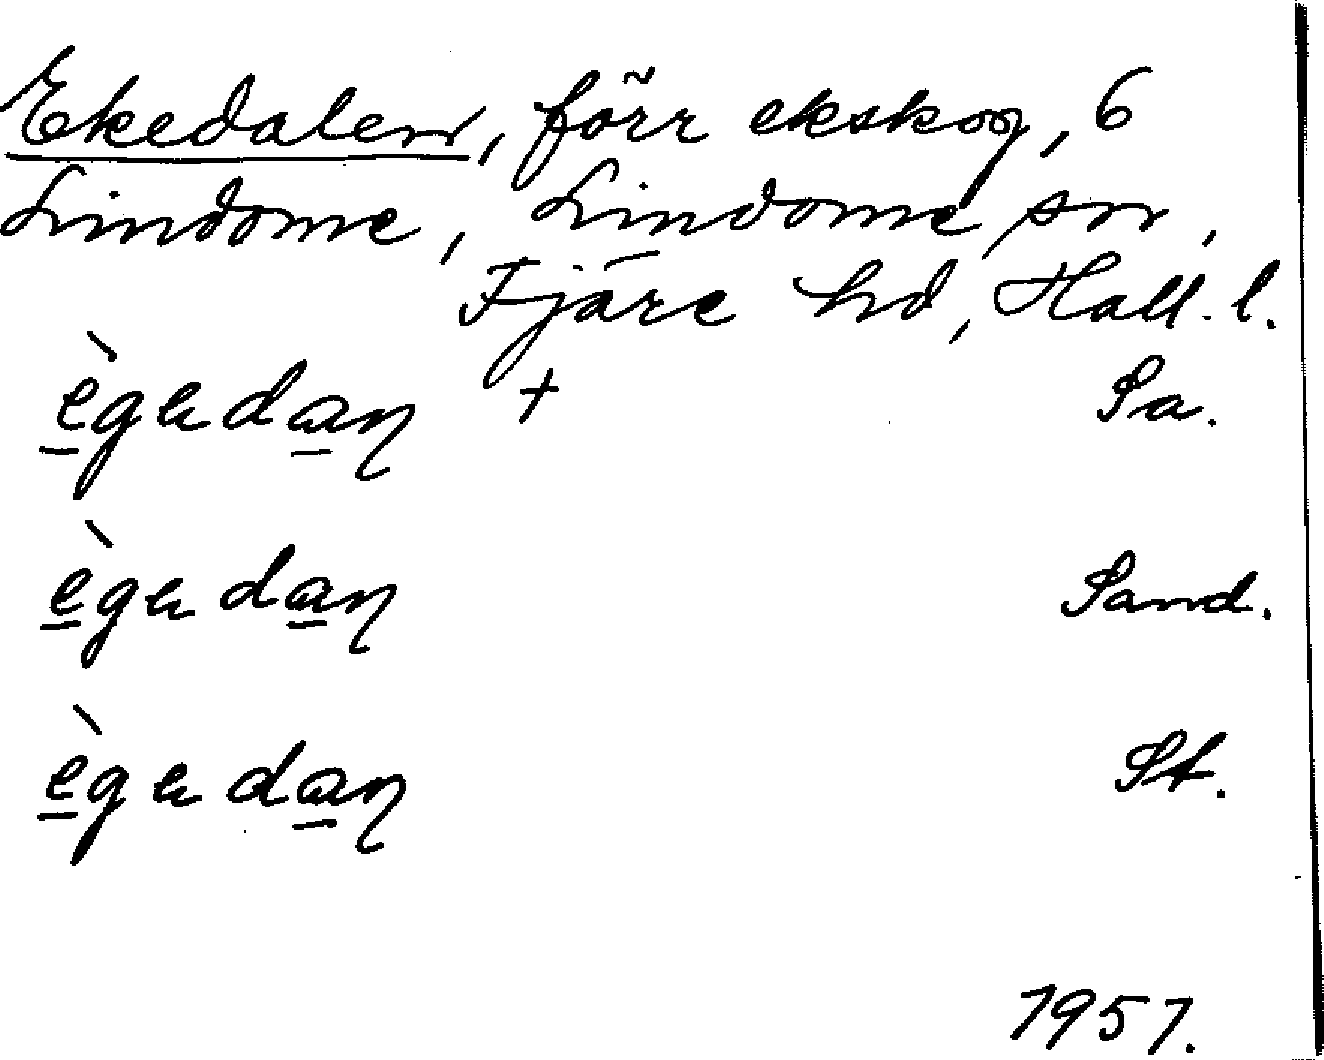 Ekedalen, förr ekskog, 6
Lindome, Lindome sn,
Fjäre hd, Hall. l.
ègedaŋ + Sa.
ègedaŋ Sand.
ègedaŋ St.
1957.